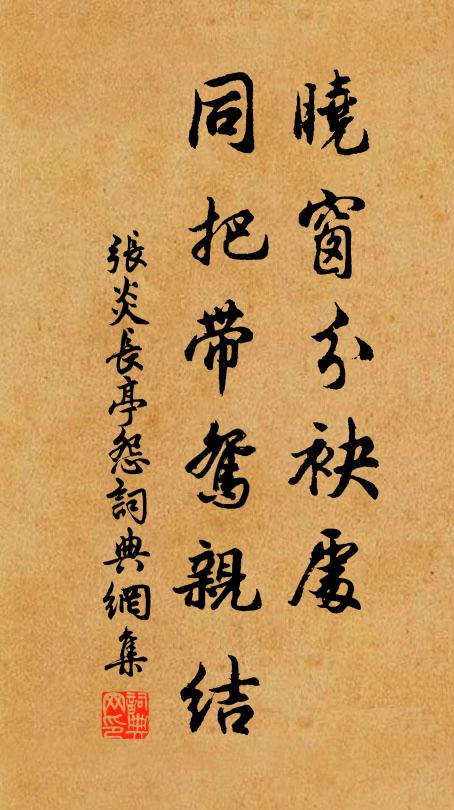 曉窗分袂處
同把帶鴛親結
張炎長亭怨詞典網集
詞典網印